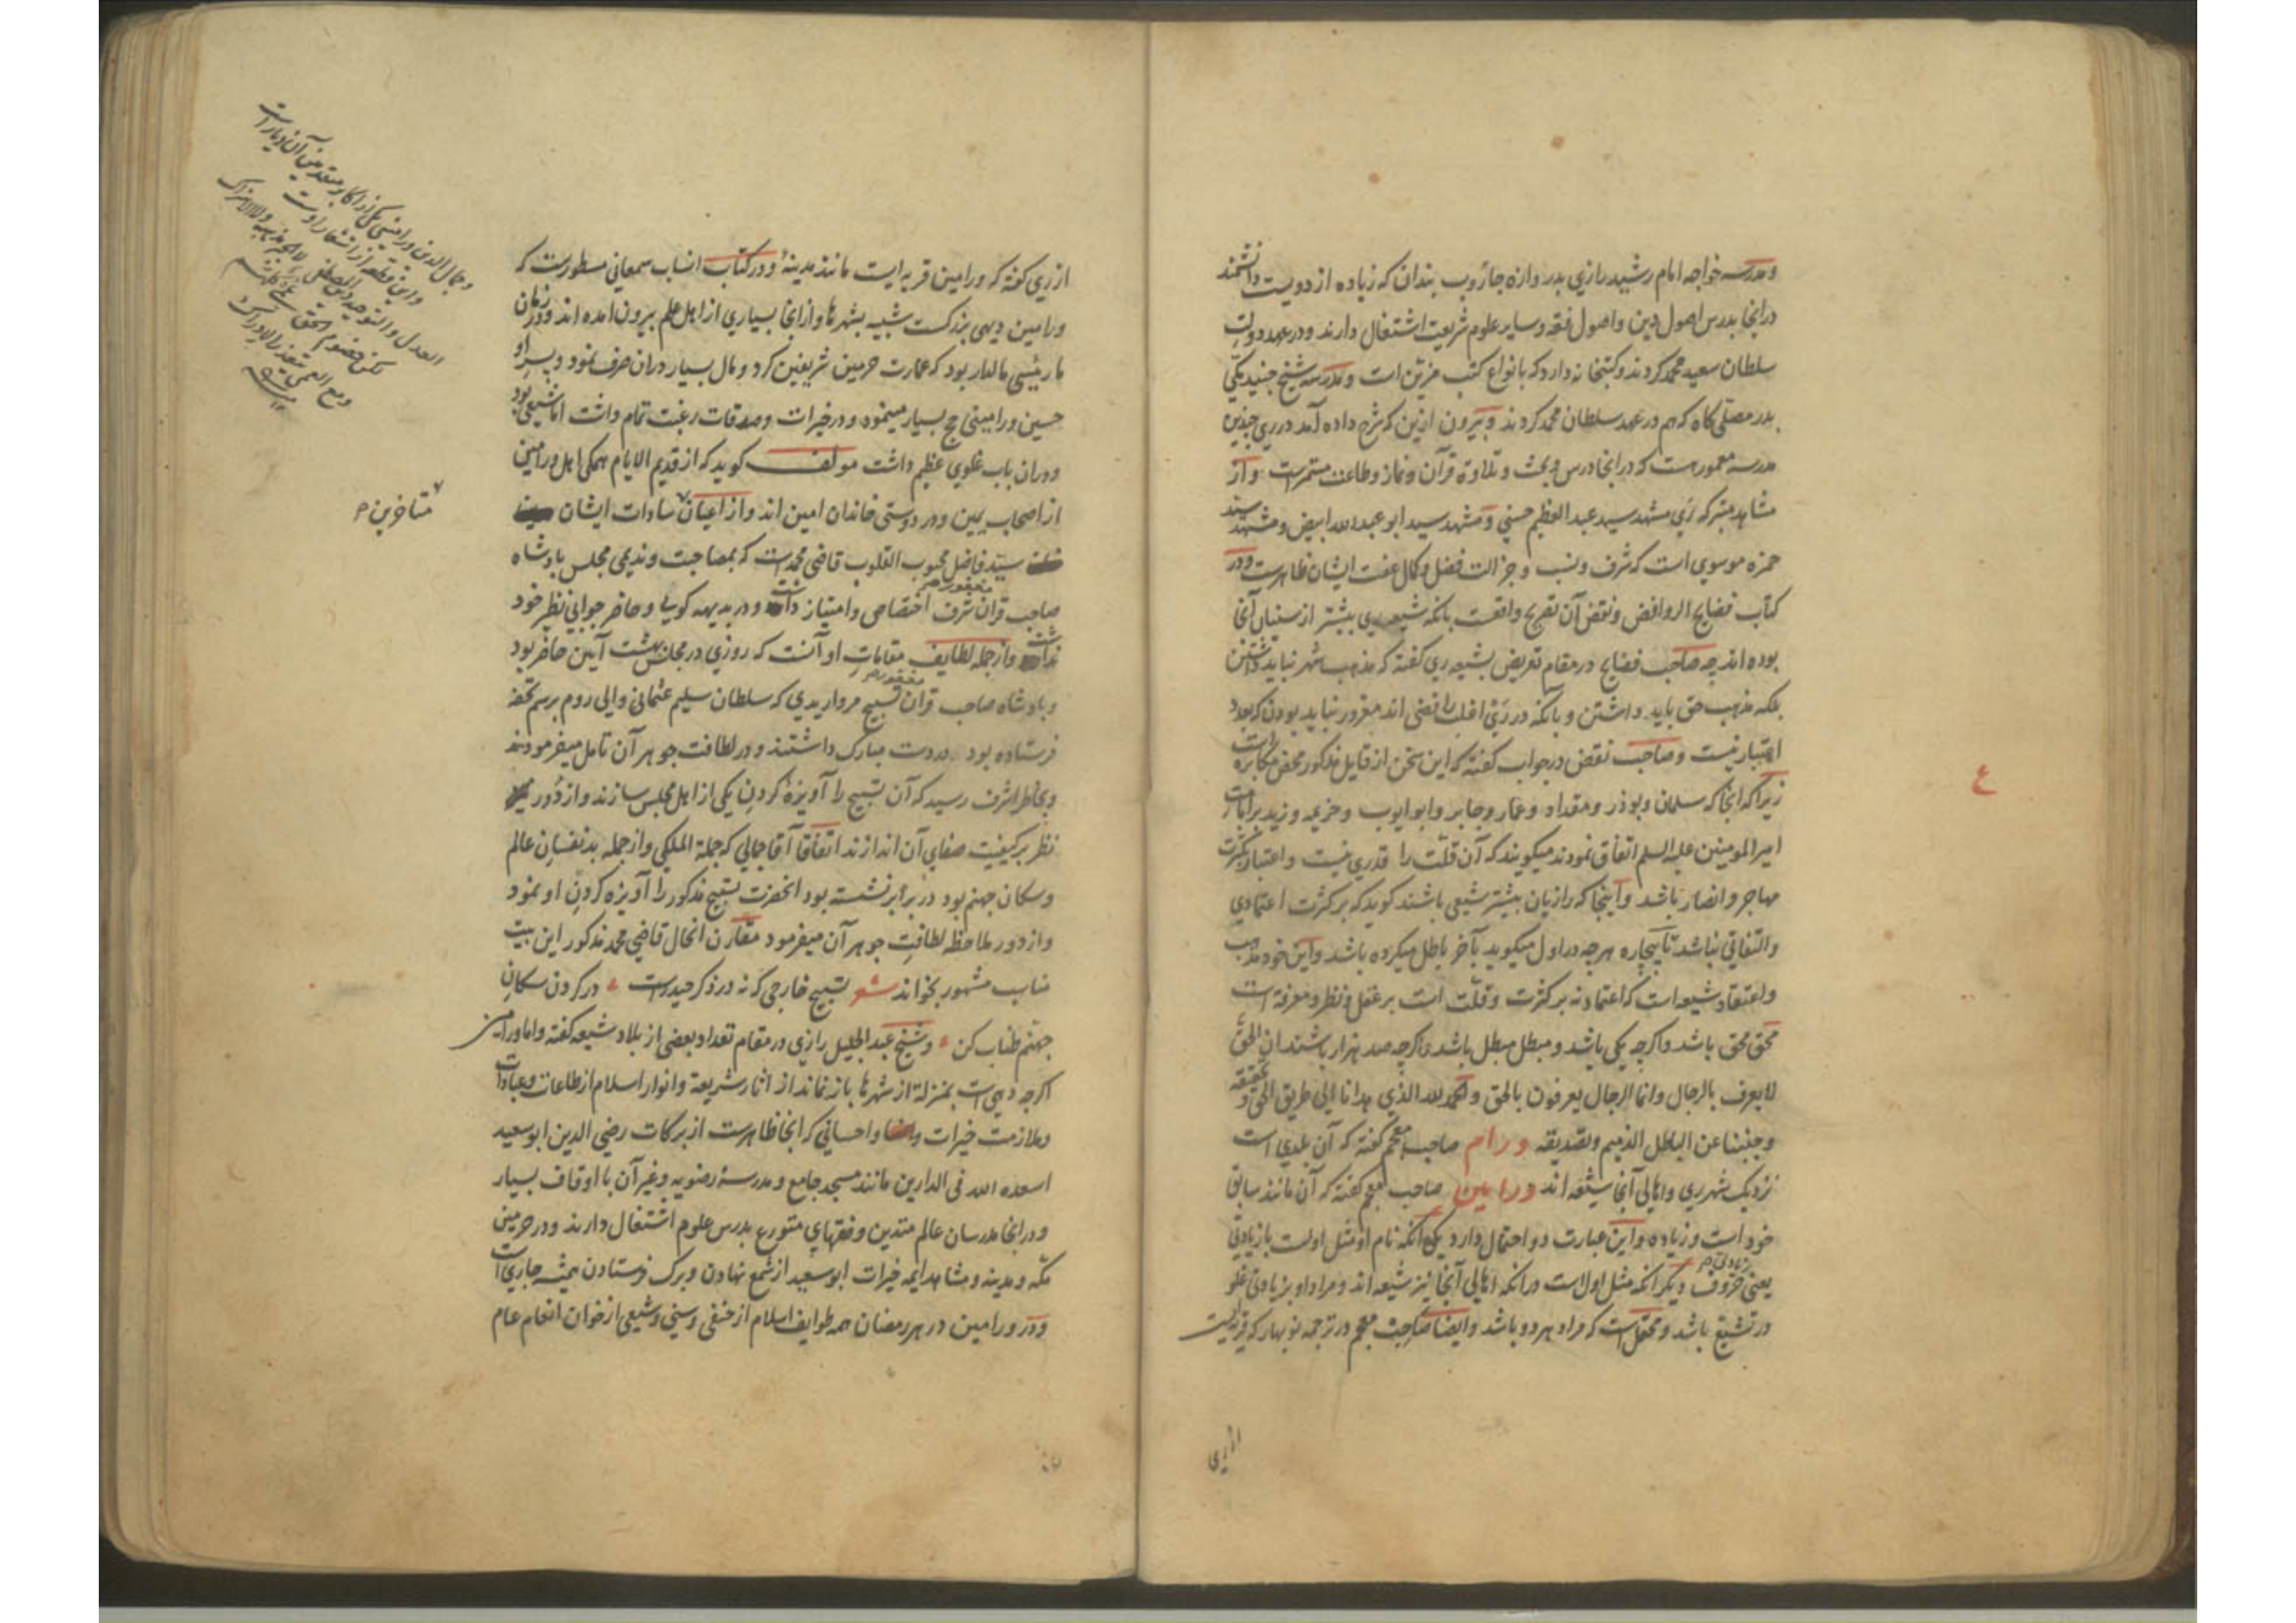 ومدرسه خواجه امام رشید رازی بدروازه جاروب بندان که زیاده از دویست دانشمند
درانجا بدرس اصول دین واصول فقه وسایر علوم شریعت اشتغال دارند ودر عهد دولت
سلطان سعید محمد کردند وکتبخانه دارد که بانواع کتب مزین است ومدرسه شیخ جنید مکی
بدر مصلی کاه که هم در عهد سلطان محمد کردند وبیرون ازین که شرح داده آمد در ری چندین
مدرسه معمورست که درانجا درس وبحث وتلاوة قرآن ونماز وطاعت مستمرست واز
مشاهد متبرکه ری مشهد سید عبدالعظیم حسنی ومشهد سید ابو عبدالله ابیض ومشهد سید
حمزه موسوی است که شرف ونسب وجزالت فضل وکمال عفت ایشان ظاهرست ودر
کتاب فضایح الروافض ونقض آن تصریح واقعست بانکه شیعه ری بیشتر از سنیان آنجا
بوده اند چه صاحب فضایح در مقام تعریض بشیعه ری کفته که مذهب شهر نباید داشتن
بلکه مذهب حق باید داشتن وبانکه در ری اغلب رافضی اند مغرور نباید بودن که بعدد
اعتبار نیست وصاحب نقض در جواب کفته که این سخن از قایل مذکور محض مکابره است
زیرا که آنجا که سلمان وبوذر ومقداد وعمار وجابر وابوایوب وخزیمه وزید برامامت
امیرالمومنین علیه السلم اتفاق نمودند میکویند که آن قلت را قدری نیست واعتبار بکثرت
مهاجر وانصار باشد واینجا که رازیان بیشتر شیعی باشند کوید که بر کثرت اعتمادی
والتفاتی نباشد تا بیچاره هرچه در اول میکوید بآخر باطل میکرده باشد واین خود مذهب
واعتقاد شیعه است که اعتماد نه بر کثرت وقلت است بر عقل ونظر ومعرفة است
محق محق باشد واکرچه یکی باشد ومبطل مبطل باشد واکرچه صد هزار باشند ان الحق
لا یعرف بالرجال وانما الرجال یعرفون بالحق والحمد لله الذی هدانا الی طریق الحق وتحقیقه
وجنبنا عن الباطل الذمیم وتصدیقه ورام صاحب معجم کفته که آن بلدی است
نزدیک بشهر ری واهالی آنجا شیعه اند ورامین صاحب معجم کفته که آن مانند سابق
خود است وزیاده واین عبارت دو احتمال دارد یکی آنکه نام او مثل اولست بازیادتی
زیادتی حر
یعنی حروف دیکر آنکه مثل اول است درانکه اهالی آنجا نیز شیعه اند ومراد او بزیادتی غلو
در تشیع باشد ومحتمل است که مراد هر دو باشد وایضا صاحب معجم در ترجمه نوبهار که قریه ایست
از ری
ع
از ری کفته که ورامین قریه ایست مانند مدینه ودر کتاب انساب سمعانی مسطورست که
ورامین دیهی بزرکست شبیه بشهرها وازانجا بسیاری از اهل علم بیرون آمده اند ودر زمان
ما رئیسی مالدار بود که عمارت حرمین شریفین کرد ومال بسیار دران صرف نمود وپسر او
حسین ورامینی حج بسیار مینمود ودر خیرات وصدقات رغبت تمام داشت اما شیعی بود
ودران باب غلوی عظیم داشت مولف کوید که از قدیم الایام همکی اهل ورامین
از اصحاب یمین ودر دوستی خاندان امین اند واز اعیان سادات ایشان
سید فاضل محبوب القلوب قاضی محمدست که بمصاحبت وندیمی مجلس پادشاه
مغفور
صاحب قران شرف اختصاص وامتیاز داشت ودر بدیهه کویی وحاضر جوابی نظیر خود
نداشت وازجمله لطایف مقامات او آنست که روزی در مجلس بهشت آیین حاضر بود
مغفور
وپادشاه صاحب قران تسبیح مرواریدی که سلطان سلیم عثمانی والی روم برسم تحفه
فرستاده بود در دست مبارک داشتند ودر لطافت جوهر آن تامل میفرمودند
وبخاطر اشرف رسید که آن تسبیح را آویزه کردن یکی از اهل مجلس سازند واز دور
نظر بر کیفیت صفای آن اندازند اتفاقا آقا جمالی که جملة الملکی وازجمله بدنفسان عالم
وسکان جهنم بود در برابر نشسته بود انحضرت تسبیح مذکور را آویزه کردن او نمود
واز دور ملاحظه لطافت جوهر آن میفرمود مقارن انحال قاضی محمد مذکور این بیت
مناسب مشهور بخواند شعر تسبیح خارجی که نه در ذکر حیدرست در کردن سکان
جهنم طناب کن وشیخ عبدالجلیل رازی در مقام تعداد بعضی از بلاد شیعه کفته واما ورامین
اکرچه دیهی است بمنزلة از شهرها باز نماند از آثار شریعة وانوار اسلام از طاعات وعبادات
وملازمت خیرات واحسانی که انجا ظاهرست از برکات رضی الدین ابوسعید
اسعده الله فی الدارین مانند مسجد جامع ومدرسه رضویه وغیر آن با اوقاف بسیار
ودرانجا مدرسان عالم متدین وفقهای متورع بدرس علوم اشتغال دارند ودر حرمین
مکه ومدینه ومشاهد ایمه خیرات ابوسعید از شمع نهادن وبرک فرستادن همیشه جاری است
ودر ورامین در هر رمضان همه طوایف اسلام از حنفی وسنی وشیعی از خوان انعام عام
متاخرین
وجمال الدین ورامینی یکی از اکابر متقدمین آن دیار است
واین قطعه از اشعار اوست
العدل والتوحید دین المصطفی